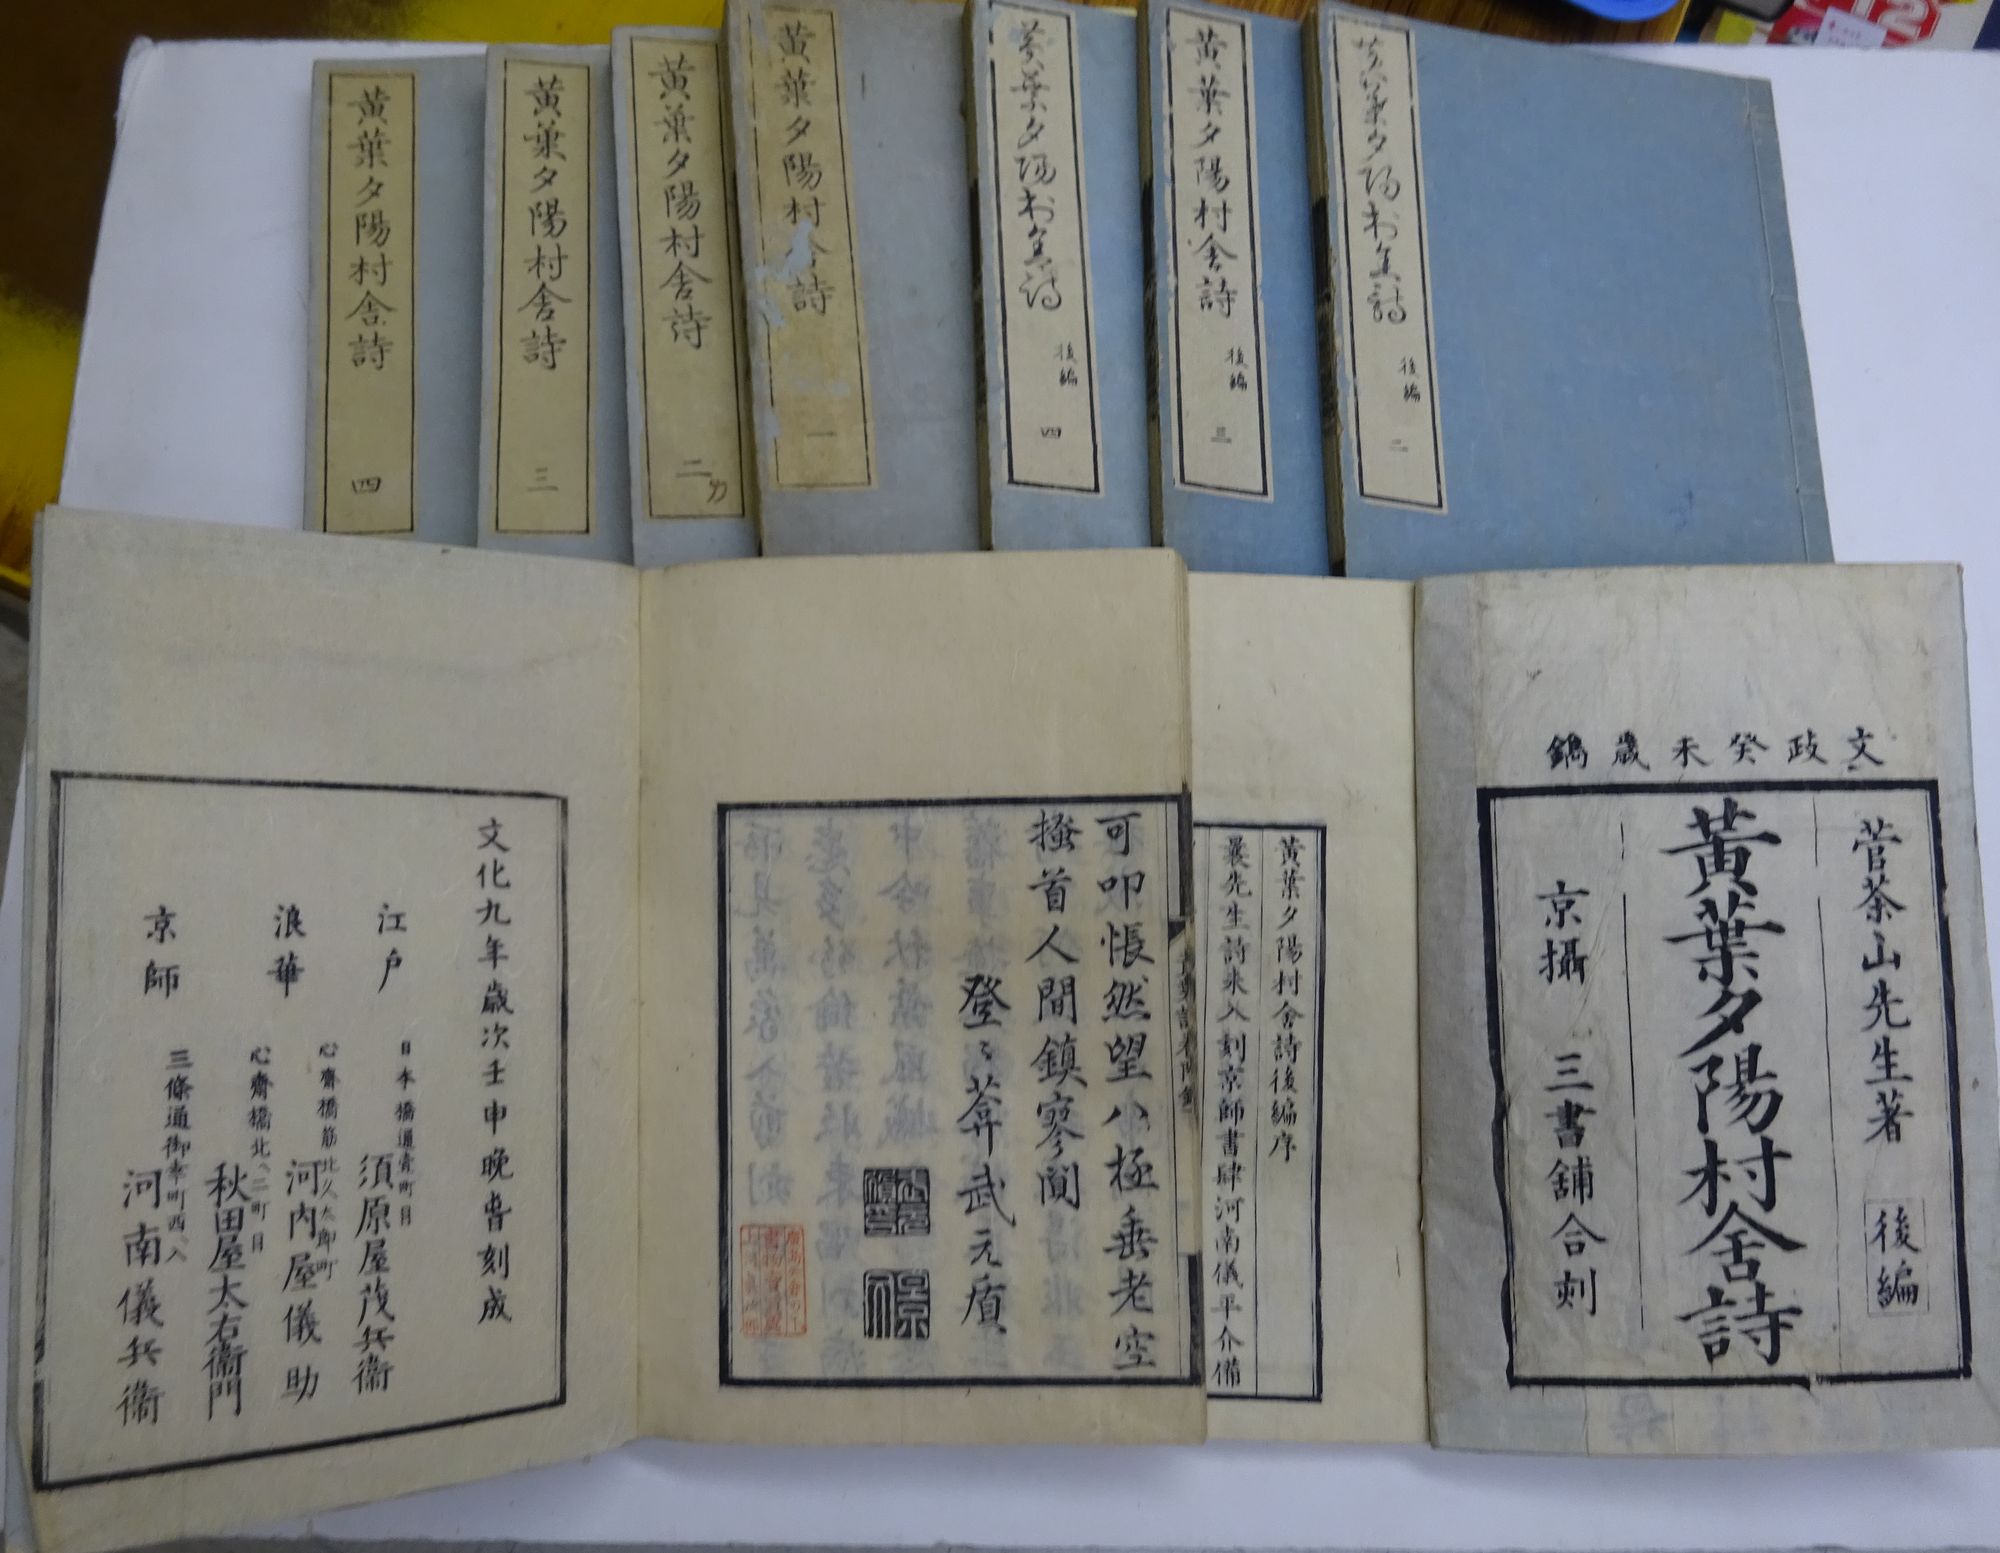 黃葉夕陽村舍詩 後編 二
黃葉夕陽村舍詩 後編 三
黃葉夕陽村舍詩 後編 四
黃葉夕陽村舍詩 一
黃葉夕陽村舍詩 二
黃葉夕陽村舍詩 三
黃葉夕陽村舍詩 四
文政癸未歲鐫
菅茶山先生著 後編
黃葉夕陽村舍詩
京攝 三書舖合刻
黃葉夕陽村舍詩後編序
曩先生詩來入刻京師書肆河南儀平介備
可叩悵然望八極垂老空
搔首人間鎮寥闃
登々葊武元質
文化九年歲次壬申晚春刻成
江戶 日本橋通壹町目 須原屋茂兵衞
浪華 心齋橋筋北久太郎町 河內屋儀助
心齋橋北ヘ二町目 秋田屋太右衞門
京師 三條通御幸町西ヘ入 河南儀兵衞